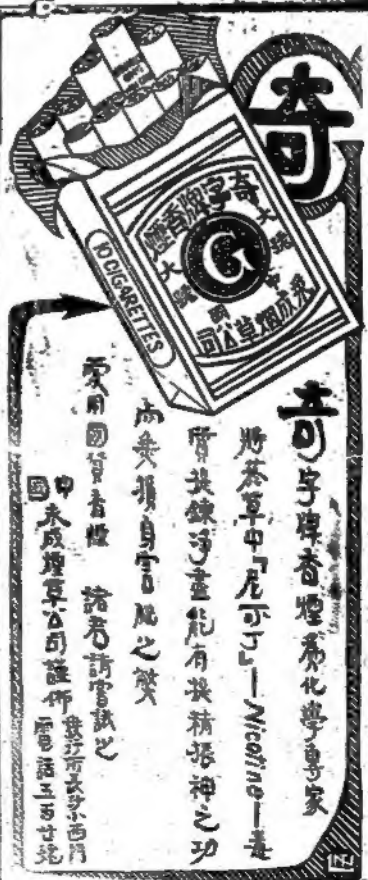 奇
奇字牌香煙
G
大號
大號
中國
成烟草公司
10 CIGARETTES
奇字牌香煙 化學專家
將菸草中「尼可丁」—Nicotine—毒
質提鍊淨盡能有提精振神之功
而無損身害腦之弊
愛用國貨香煙 諸君請嘗試之
中國 成煙草公司謹佈
長沙小西門
電話五百廿號